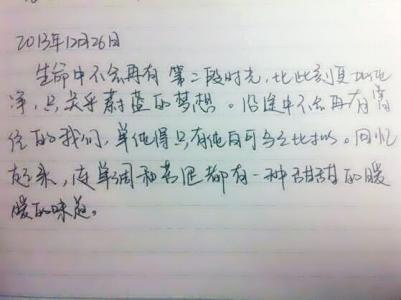 2013年12月26日
生命中不会再有第二段时光,比此刻更加纯
净,只关乎蔚蓝的梦想。沿途中不会再有
的我们,单纯得只有纯白可与之比拟。回忆
起来,连单调和苦涩都有一种甜甜的暖
暖的味道。